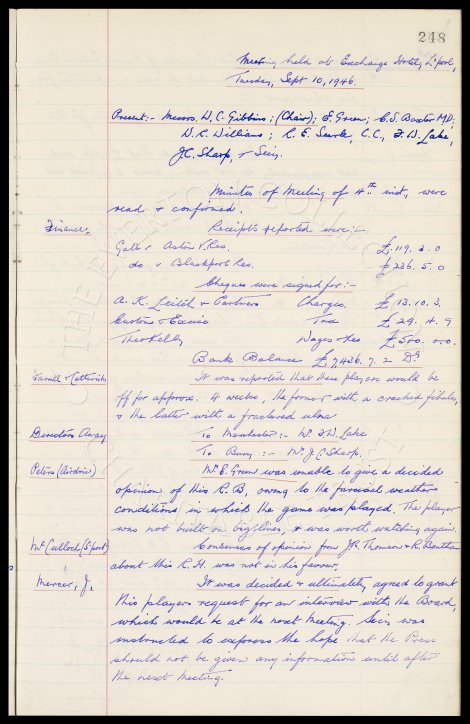 248
Meeting held at Exchange Hotel, L'pool,
Tuesday, Sept 10, 1946.
Present:- Messrs. W. C. Gibbins; (Chair); E. Green; C. S. Baxter MD;
W. R. Williams; R. E. Searle, C.C., F. W. Lake,
J. C. Sharp, & Secy.
Minutes of Meeting of 4th inst, were
read & confirmed.
Finance. Receipts reported were:-
Gate v Aston V. Res. £119. 3. 0
do v Blackpool Res. £236. 5. 0
Cheques were signed for:-
A. K. Leitch & Partners Charges £13. 10. 3.
Customs & Excise Tax £29. 4. 9
Theo Kelly Wages & es £500. 0. 0.
Bank Balance £7,436. 7. 2 Dr
Farrell & Catterick It was reported that these players would be
off for approx. 4 weeks, the former with a cracked fibula,
& the latter with a fractured ulna
Directors Away To Manchester:- Mr F. W. Lake
To Bury:- Mr J C Sharp.
Peters (Airdrie) Mr E. Green was unable to give a decided
opinion of this R.B, owing to the farcical weather
conditions in which the game was played. The player
was not built on big lines, & was worth watching again.
McCulloch (S'port) Consensus of opinion from Jk. Thomson & R. Bentham
about this R.H. was not in his favour.
Mercer, J. It was decided & ultimately agreed to grant
this players request for an interview with the Board,
which would be at the next Meeting. Secy was
instructed to express the hope that the Press
should not be given any information until after
the next Meeting.